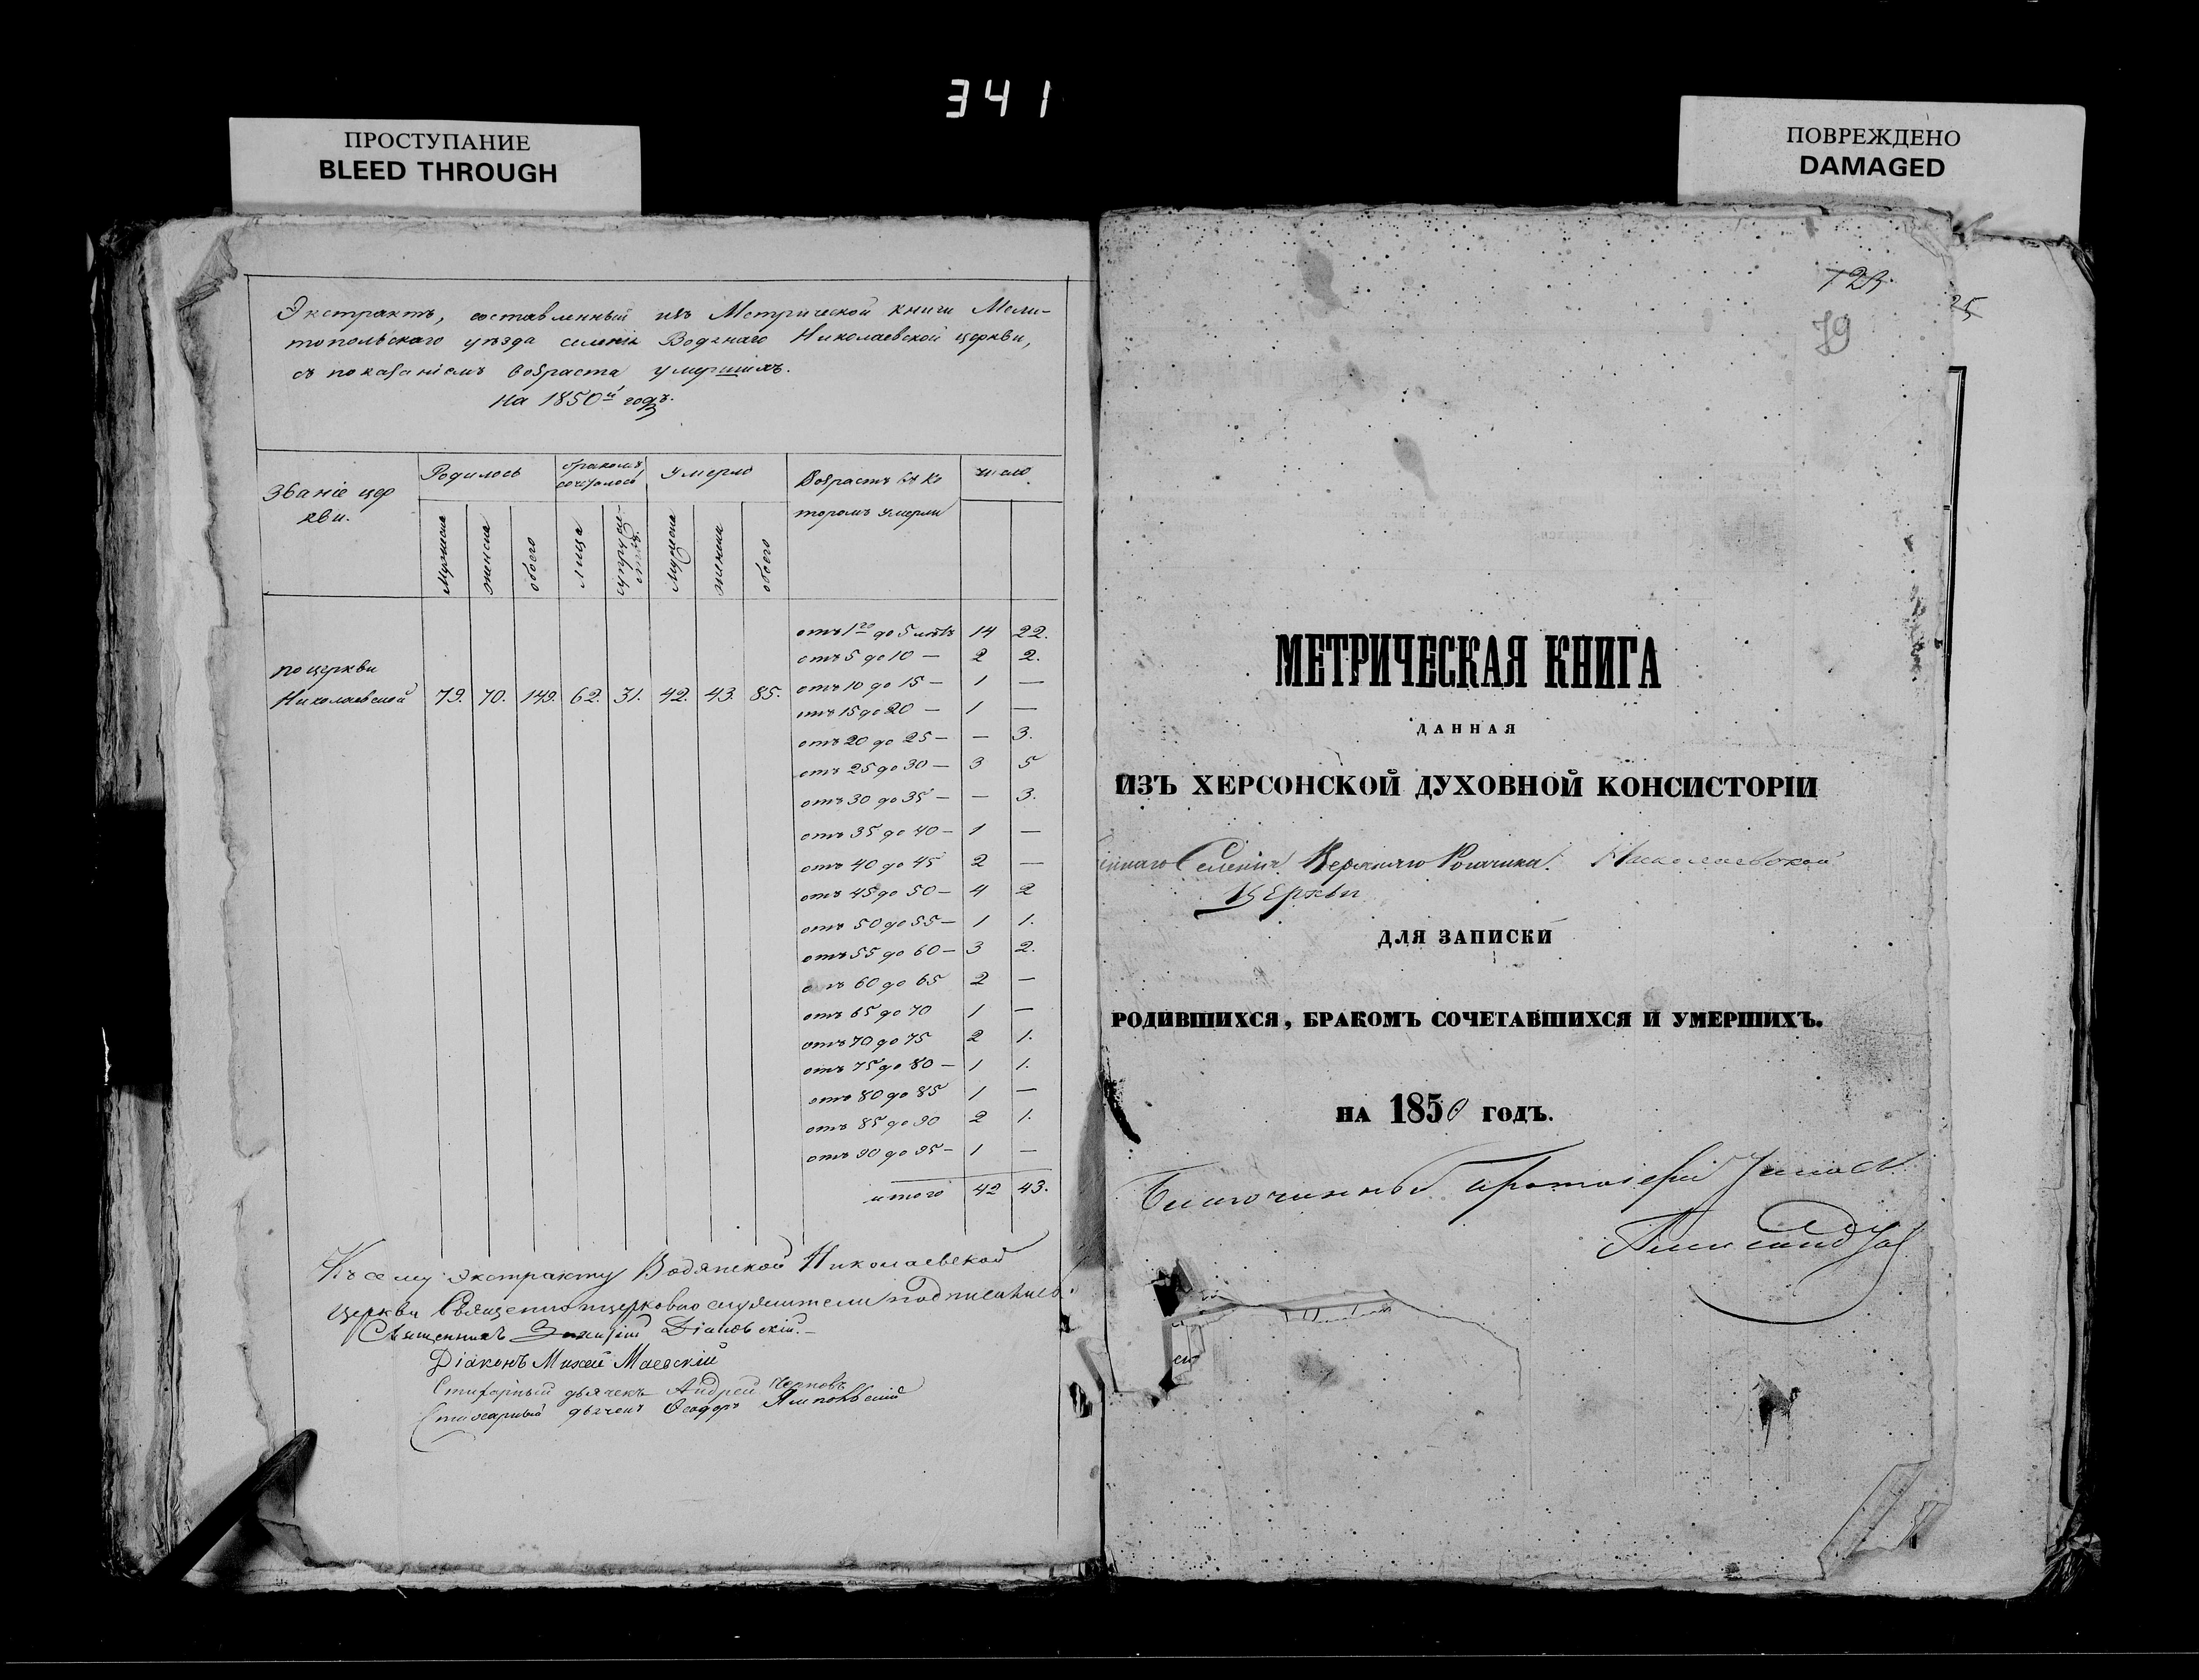 341
ПРОСТУПАНИЕ
BLEED THROUGH
ПОВРЕЖДЕНО
DAMAGED
Экстрактъ, составленный изъ Метрической книги Мели-
топольскаго уѣзда селенія Водянаго Николаевской церкви,
съ показаніемъ возраста умершихъ.
на 1850й годъ.
Званіе цер
кви.
Родилось
бракомъ сочеталось
Умерло
Возрастъ въ ко
торомъ умерли
число
мужеска
женска
обоего
лица
супруже-
ства
мужеска
женска
обоего
по церкви
Николаевской 79. 70. 149. 62. 31. 42. 43. 85.
отъ 1го до 5 лѣтъ 14 22.
отъ 5 до 10 — 2 2.
отъ 10 до 15 — 1 —
отъ 15 до 20 — 1 —
отъ 20 до 25 — — 3.
отъ 25 до 30 — 3 5
отъ 30 до 35 — — 3.
отъ 35 до 40 — 1 —
отъ 40 до 45 2 —
отъ 45 до 50 — 4 2
отъ 50 до 55 — 1 1.
отъ 55 до 60 — 3 2.
отъ 60 до 65 2 —
отъ 65 до 70 1 —
отъ 70 до 75 2 1.
отъ 75 до 80 — 1 1.
отъ 80 до 85 1 —
отъ 85 до 90 2 1.
отъ 90 до 95 — 1 —
итого 42 43.
Къ сему экстракту Водянской Николаевской
церкви Священноцерковнослужители подписались.
Священникъ Діановскій.
Діаконъ Михей Маевскій
Стихарный дьячекъ Андрей
Стихарный дьячекъ Ѳеодоръ
123.
79
25
МЕТРИЧЕСКАЯ КНИГА
ДАННАЯ
ИЗЪ ХЕРСОНСКОЙ ДУХОВНОЙ КОНСИСТОРІИ
Селенія Верхняго Рогачика Николаевской
Церкви
ДЛЯ ЗАПИСКИ
РОДИВШИХСЯ, БРАКОМЪ СОЧЕТАВШИХСЯ И УМЕРШИХЪ.
НА 1850 ГОДЪ.
Благочинный Протоіерей